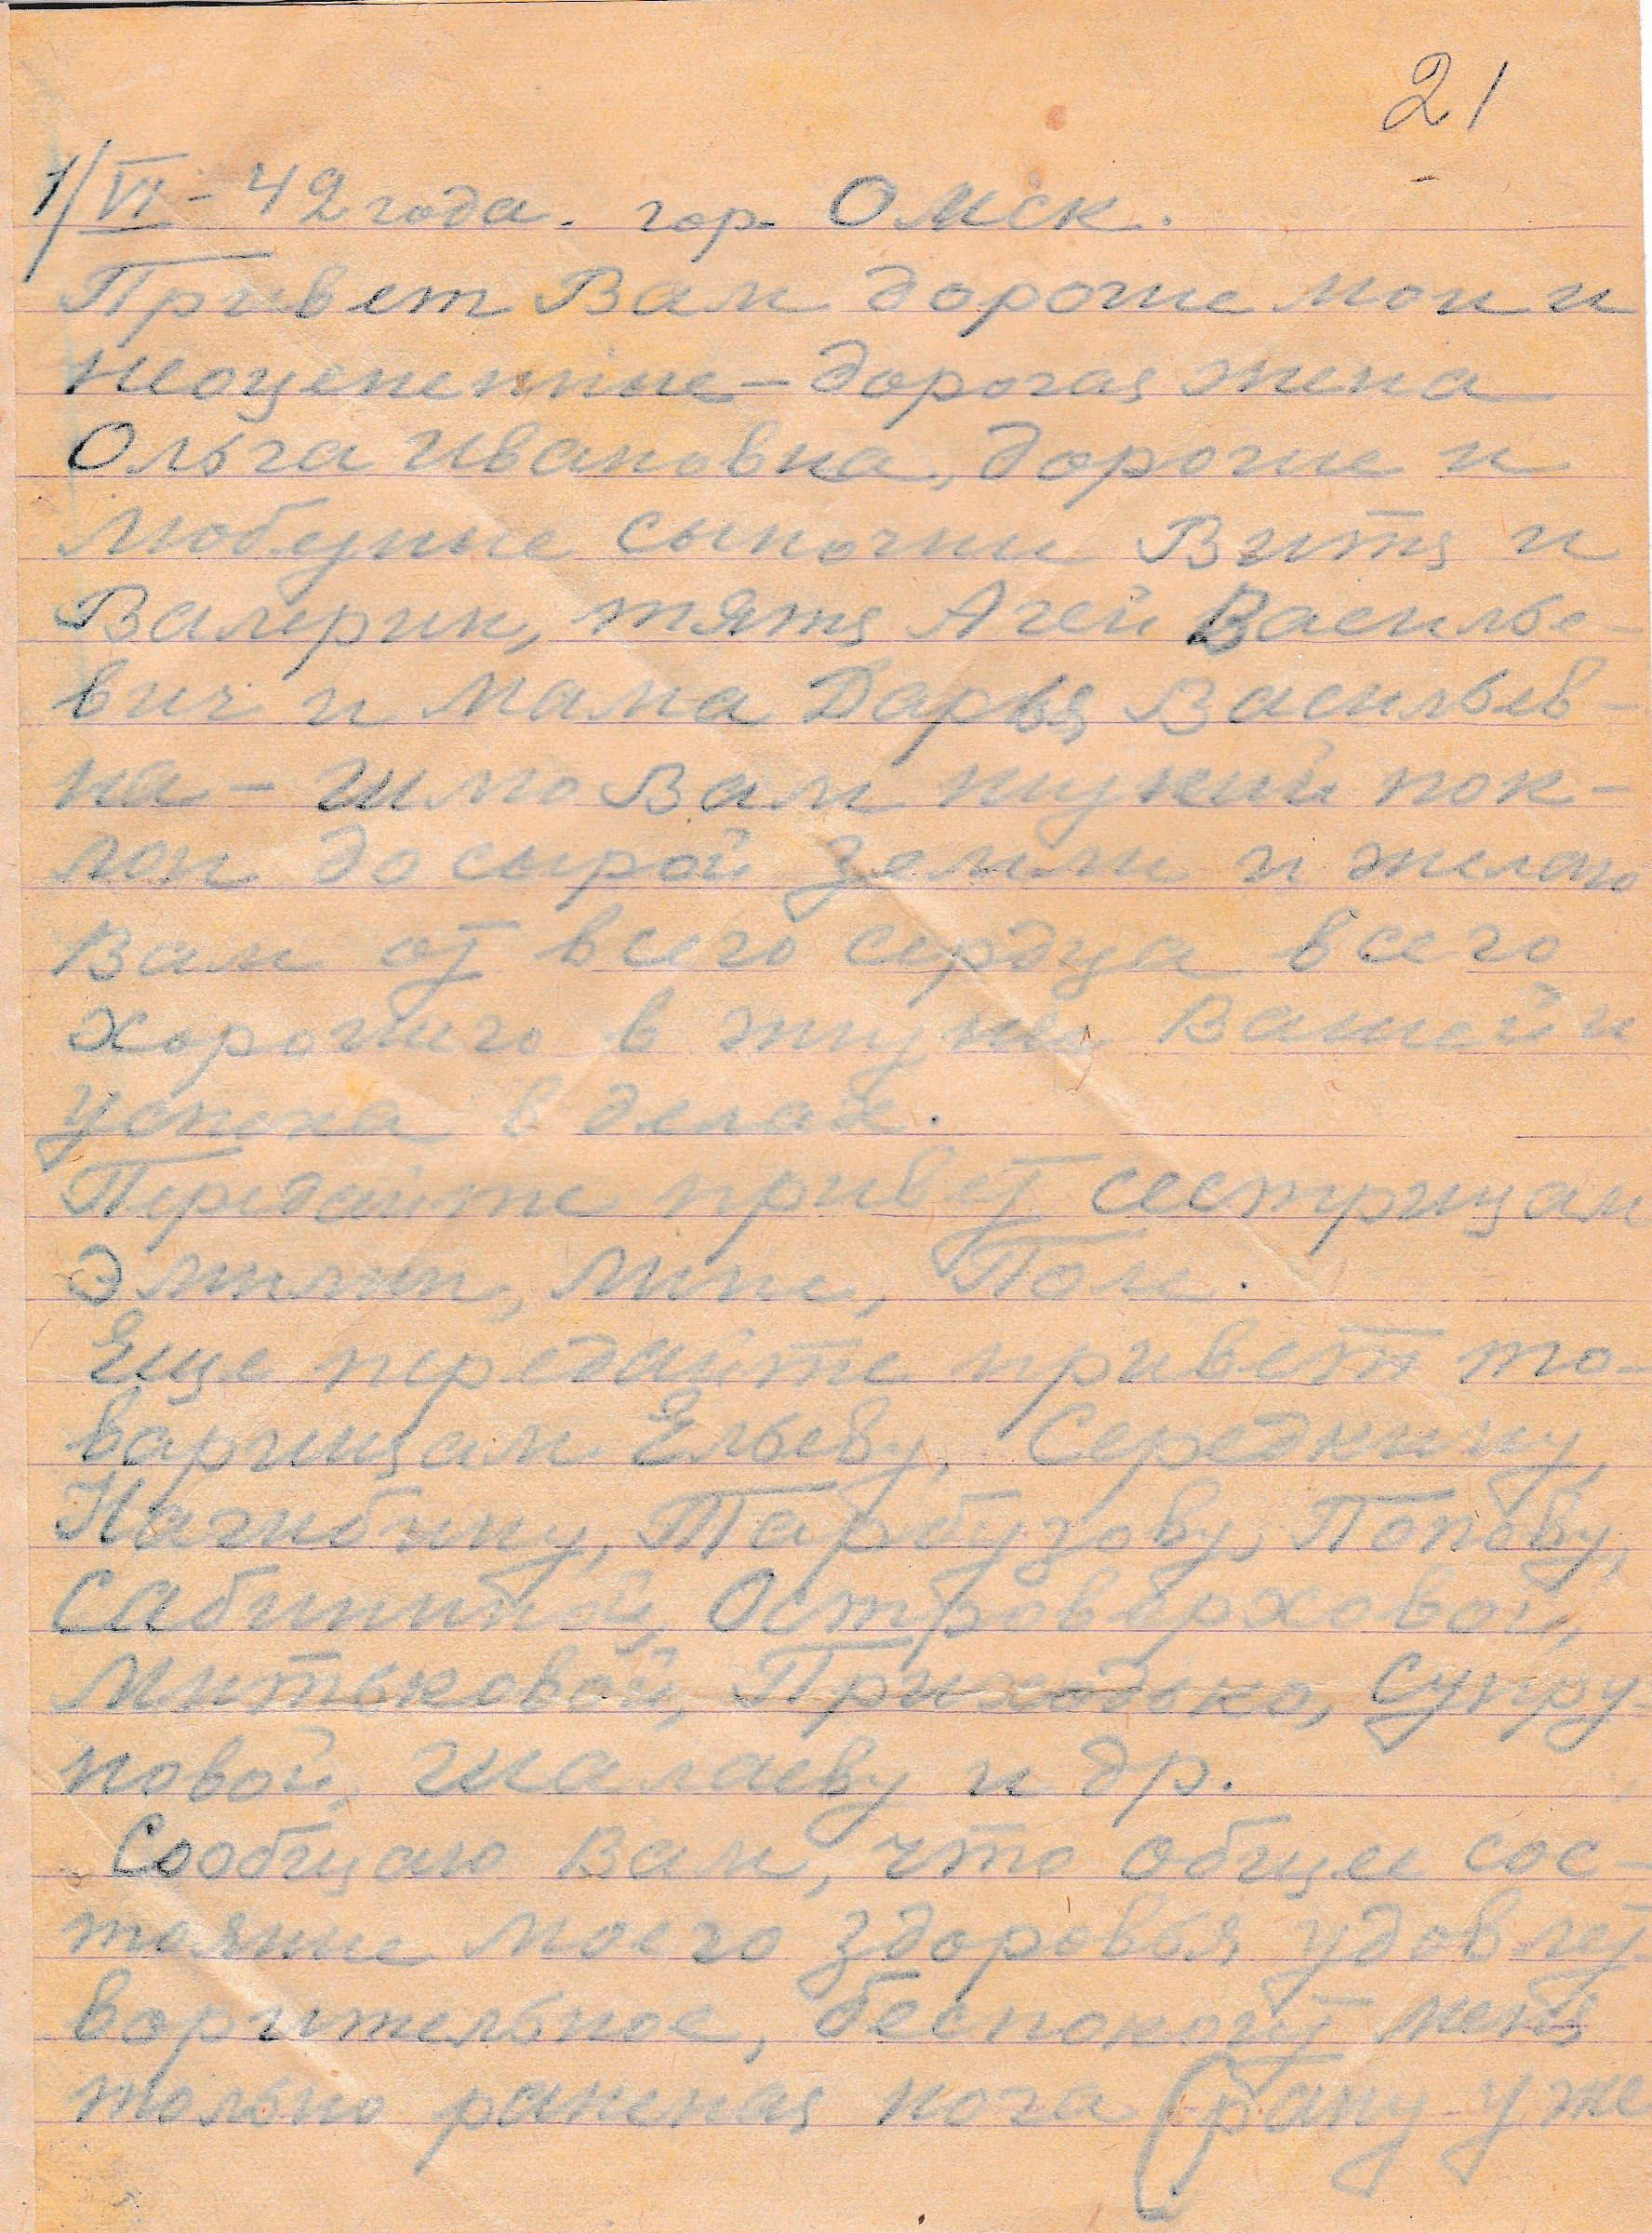 21
1/VI-42 года. гор. Омск.
Привет Вам дорогие мои и
неоцененные – дорогая жена
Ольга Ивановна, дорогие и
любезные сыночки Витя и
Валерик, тятя Агей Василье-
вич и мама Дарья Васильев-
на – шлю Вам низкий пок-
лон до сырой земли и желаю
Вам от всего сердца всего
хорошего в жизни Вашей и
успеха в делах.
Передайте привет сестрицам
Эмилии, Лине, Поле.
Еще передайте привет то-
варищам Ельеву, Середкину,
Нагибину, Тарбузову, Попову,
Сабининой, Островерховой,
Митьковой, Приходько, Супру-
новой, Шалаеву и др.
Сообщаю Вам, что общее сос-
тояние моего здоровья удовлет
ворительное, беспокоит меня
только раненая нога (рану уже